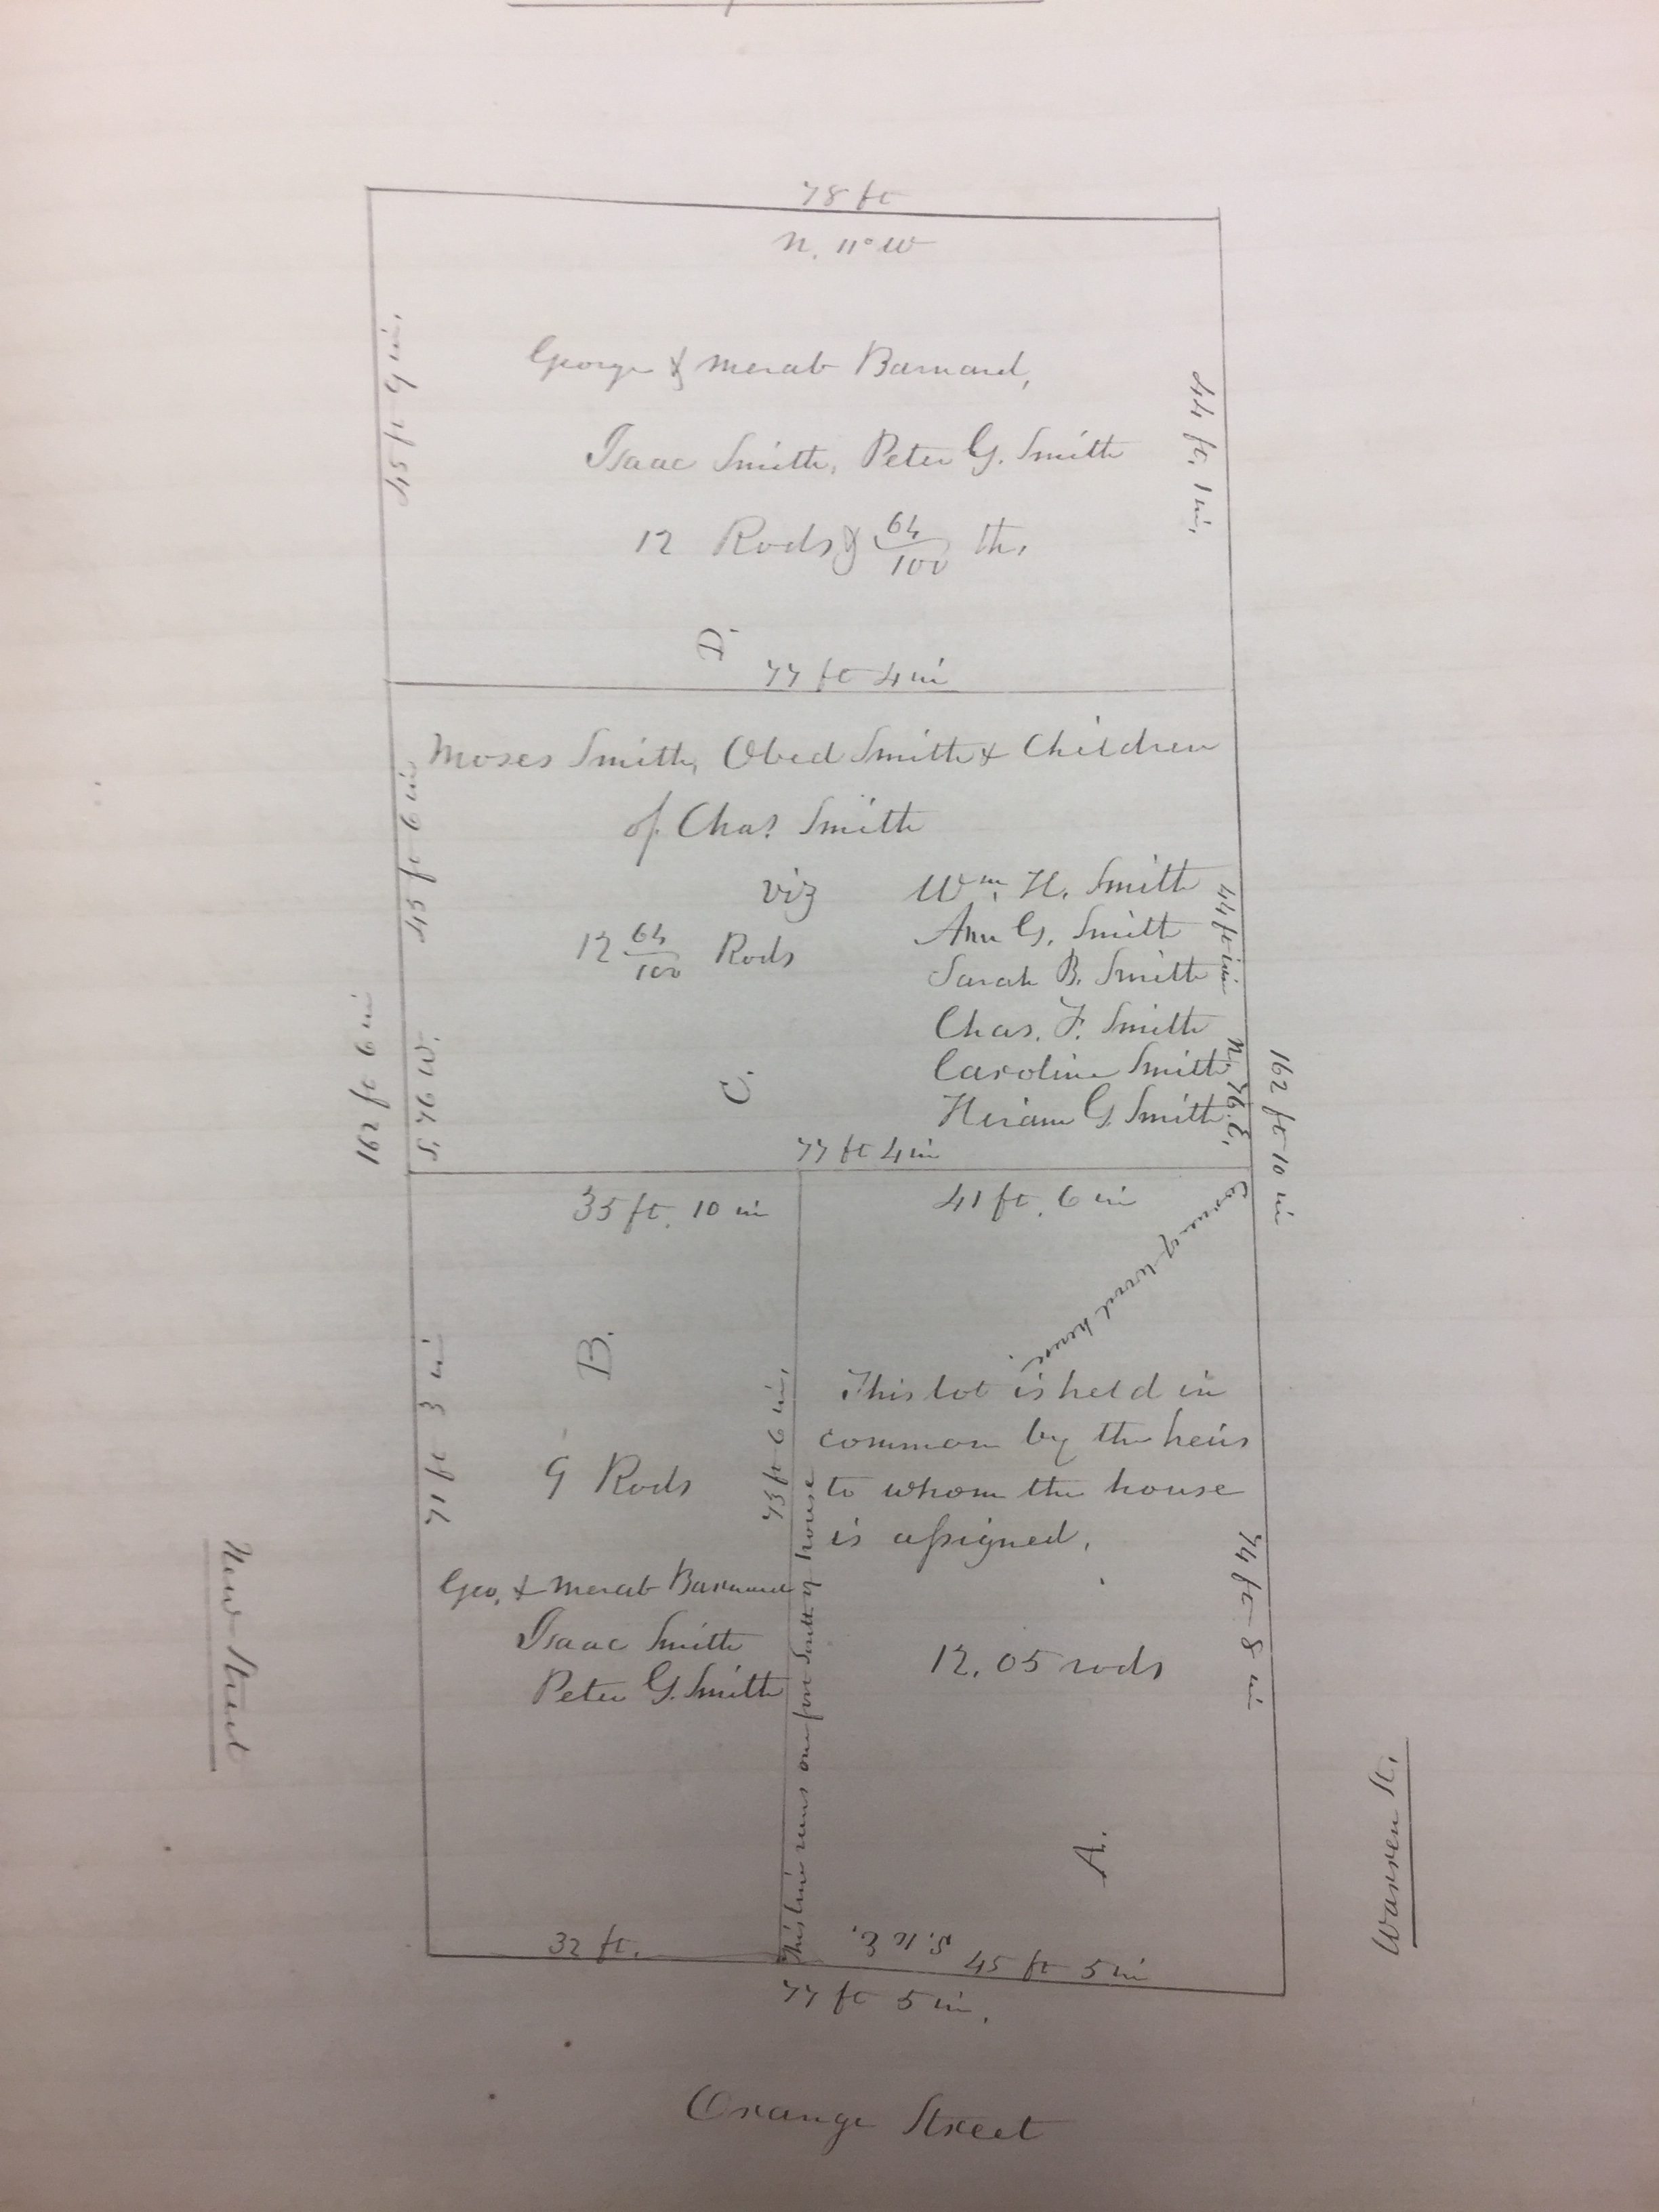 78 ft
N. 11° W
45 ft 9 in.
George & Merab Barnard,
44 ft. 1 in.
Isaac Smith, Peter G. Smith
12 Rods & 64/100 ths
D.
77 ft 4 in
Moses Smith, Obed Smith & Children
of Chas. Smith
45 ft 6 in
viz
Wm. H. Smith
Ann G. Smith
12 64/100 Rods
Sarah B. Smith
44 ft 1 in
Chas. F. Smith
Caroline Smith
Hiram G. Smith
C.
S. 76 W.
N. 76. E.
162 ft 6 in
162 ft 10 in
77 ft 4 in
35 ft. 10 in
41 ft. 6 in
Corner of wood house.
B.
71 ft 3 in
9 Rods
73 ft 6 in.
This lot is held in
common by the heirs
to whom the house
is assigned.
Geo. & Merab Barnard
Isaac Smith
Peter G. Smith
This line runs one foot South of house
12.05 rods
74 ft 8 in
A.
New Street
Warren St.
32 ft.
S. 11 E.
45 ft 5 in
77 ft 5 in.
Orange Street